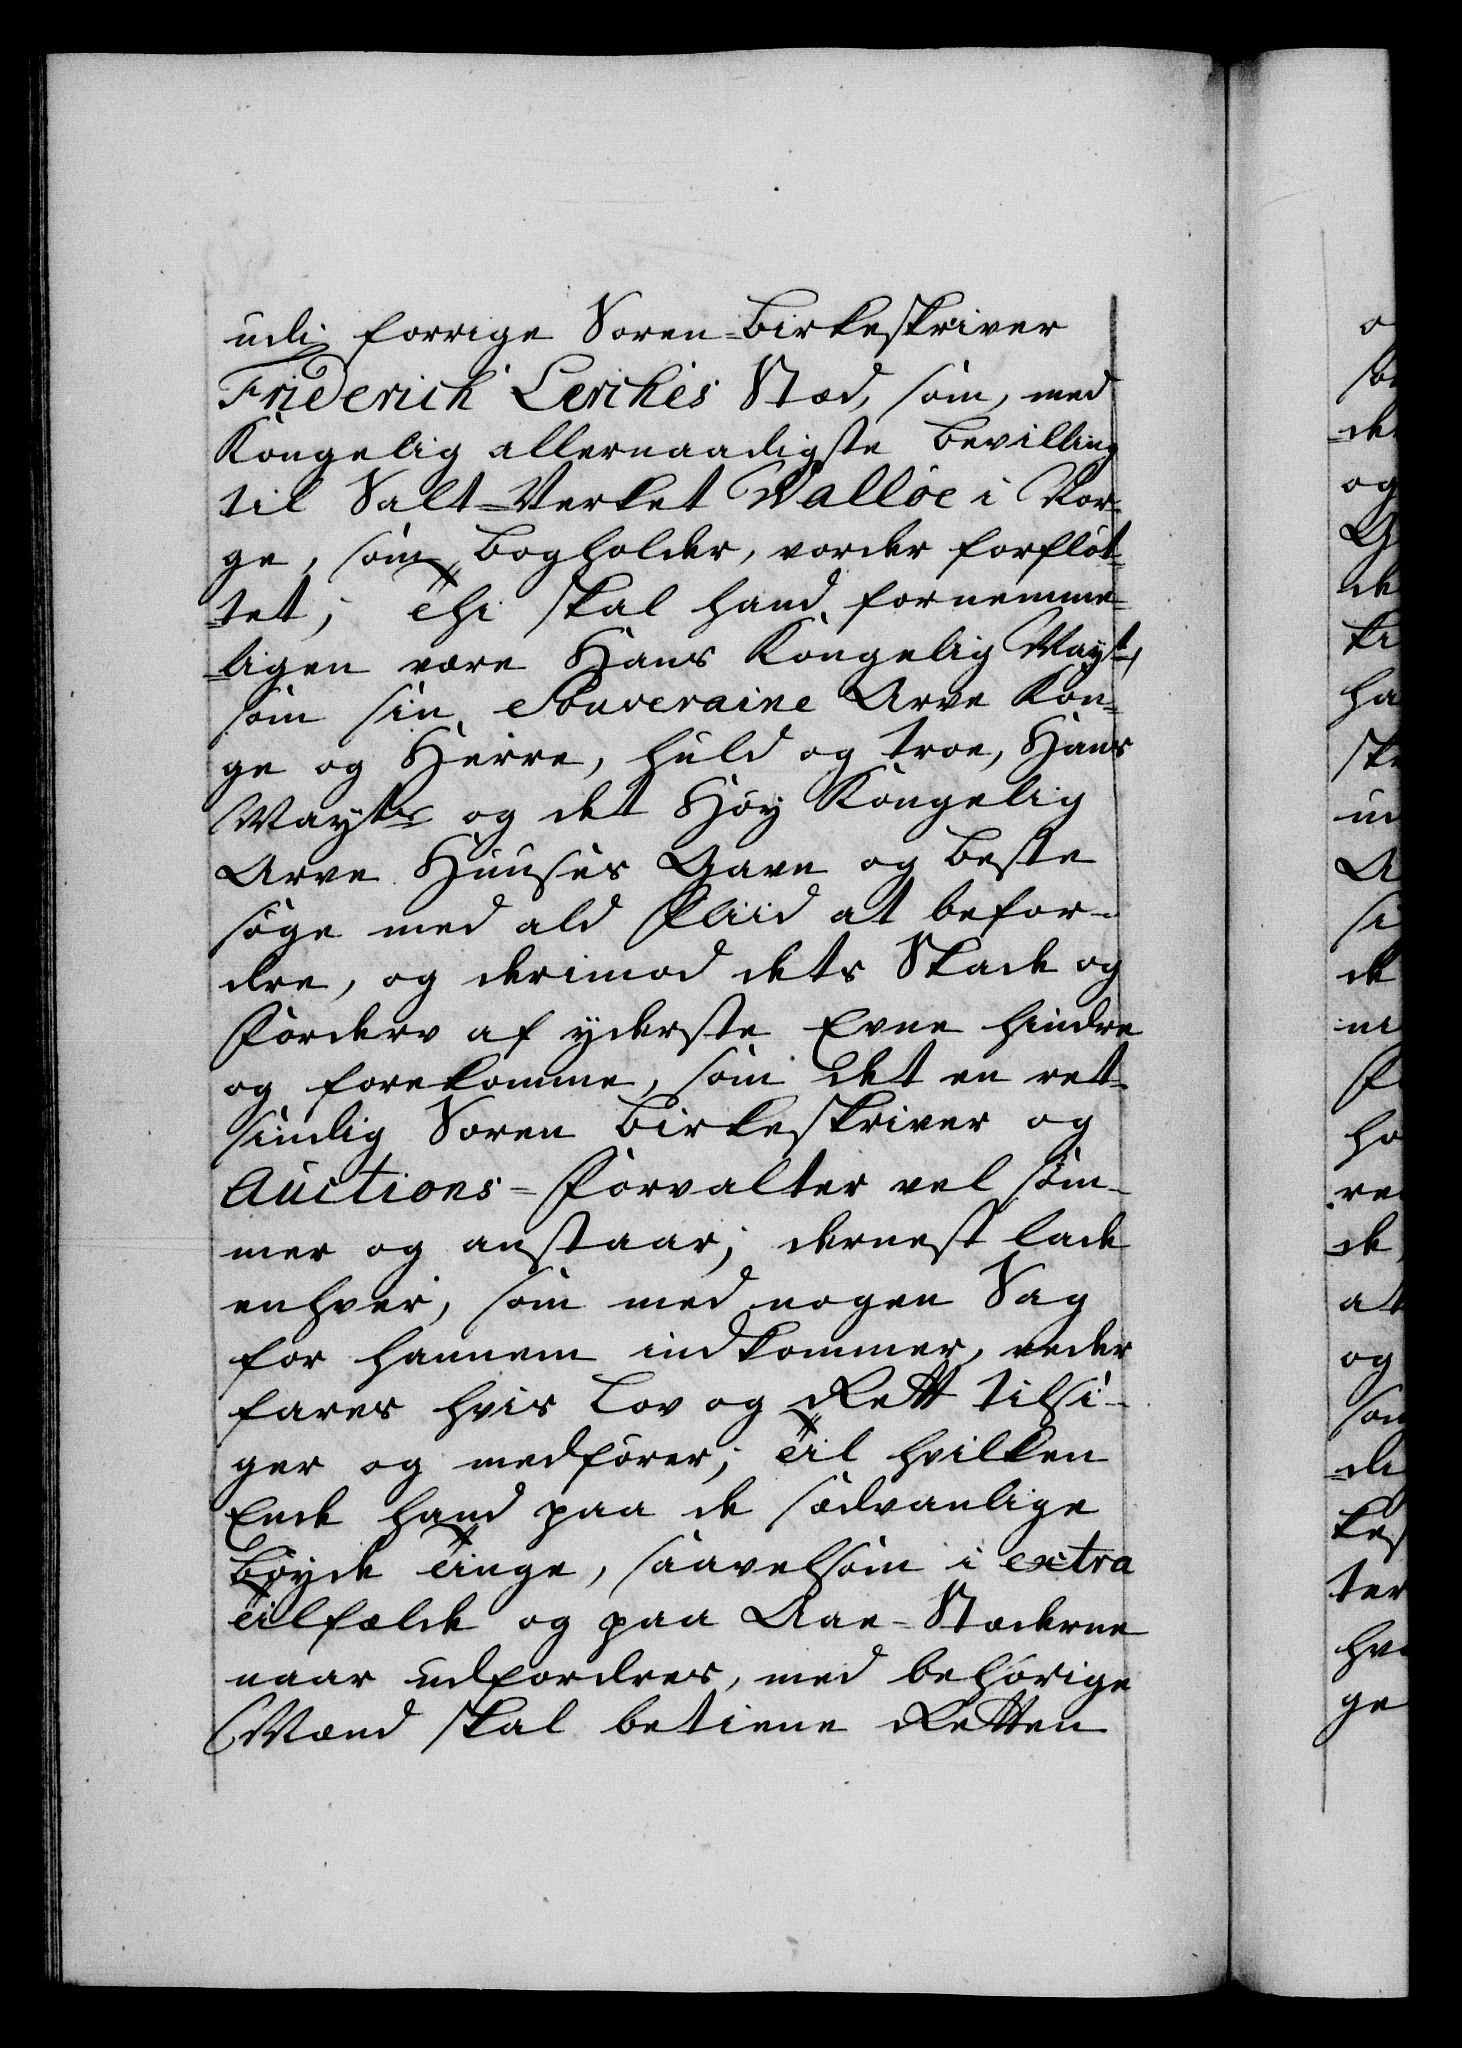 udi forrige Soren-Birkeskriver
Friderich Lerches Stæd, som, med
Kongelig allernaadigste Bevilling
til Salt-Verket Walløe i Nor-
ge, som Bogholder, vorder forfløt-
tet; Thi skal hand fornemme-
ligen være Hans Kongelig Mayt,
som sin Souveraine Arve Kon-
ge og Herre, huld og troe, Hans
Mayts og det Høy Kongelig
Arve Huuses Gavn og beste
søge med ald Fliid at befor-
dre, og derimod dets Skade og
Forderv af yderste Evne hindre
og forekomme, som det en ret-
sindig Soren Birkeskriver og
Auctions-Forvalter vel søm-
mer og anstaar; dernest lade
enhver, som med nogen Sag
for hannem indkommer, veder
fares hvis Lov og Rett tilsi-
ger og medfører; Til hvilken
Ende hand paa de sædvanlige
Bøyde Tinge, saavelsom i extra
Tilfælde og paa Aae-Stæderne
naar udfordres, med behørige
Mænd skal betiene Retten